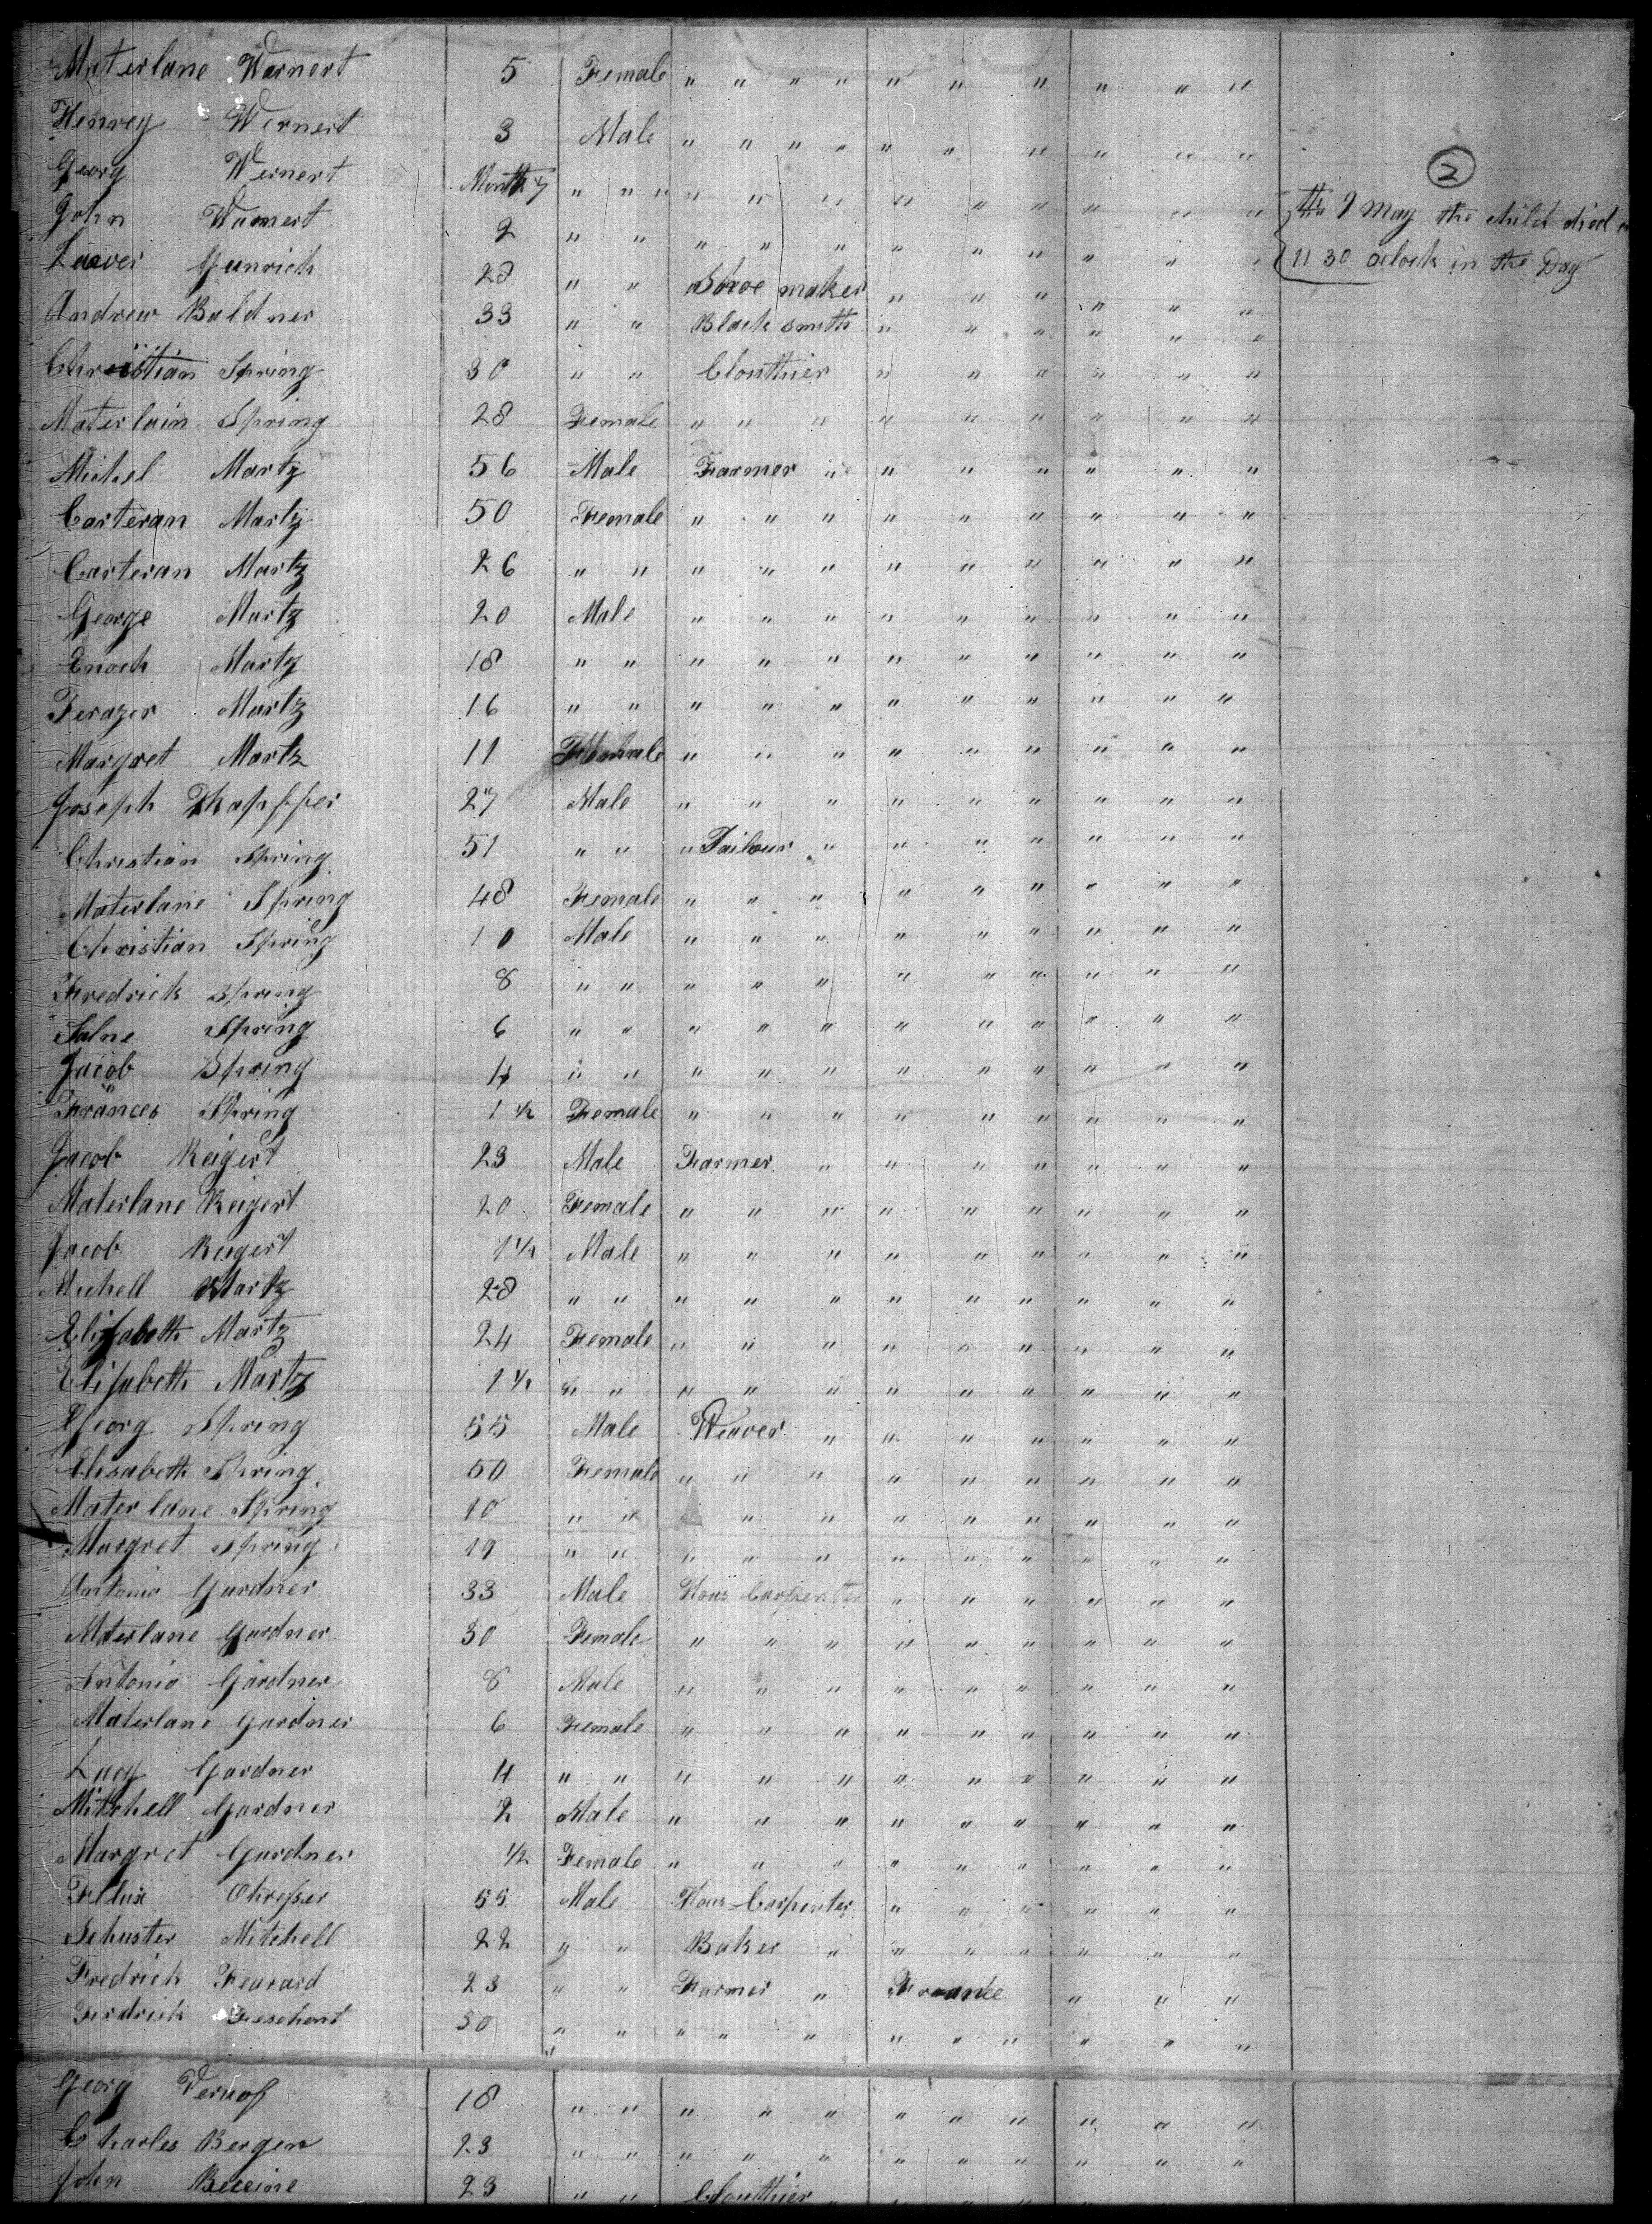 Materlane Wernert 5 Female " " " " " " " " " "
Henrey Wernert 3 Male " " " " " " " " " "
2
Georg Wernert Month 7 " " " " " " " " " " " "
the 9 May the child died
John Wernert 2 " " " " " " " " " " "
11 30 oclock in the Day
Gunrich 28 " " Shoe maker " " " " " "
Andrew Baldner 33 " " Black smith " " " " " "
Christian Spring 30 " " Clouthier " " " " " "
Materlain Spring 28 Female " " " " " " " " "
Michel Martz 56 Male Farmer " " " " " " "
Carteran Martz 50 Female " " " " " " " " "
Carteran Martz 26 " " " " " " " " " " "
George Martz 20 Male " " " " " " " " "
Enoch Martz 18 " " " " " " " " " " "
Ferazer Martz 16 " " " " " " " " " " "
Margret Martz 11 Female " " " " " " " " "
Joseph 27 Male " " " " " " " " "
Christian Spring 51 " " " Tailour " " " " " " "
Materlane Spring 48 Female " " " " " " " " "
Christian Spring 10 Male " " " " " " " " "
Fredrick Spring 8 " " " " " " " " " " "
Spring 6 " " " " " " " " " " "
Jacob Spring 4 " " " " " " " " " " "
Frances Spring 1 1/2 Female " " " " " " " " "
Jacob Reigert 23 Male Farmer " " " " " " "
Materlane Reigert 20 Female " " " " " " " " "
Jacob Reigert 1 1/2 Male " " " " " " " " "
Michell Martz 28 " " " " " " " " " " "
Elisabeth Martz 24 Female " " " " " " " " "
Elisabeth Martz 1 1/2 " " " " " " " " " " "
Georg Spring 55 Male Weaver " " " " " " "
Elisabeth Spring 50 Female " " " " " " " " "
Materlane Spring 10 " " " " " " " " " "
Margret Spring 19 " " " " " " " " " " "
Antonio Gardner 33 Male Hous Carpenter " " " " " "
Materlane Gardner 30 Female " " " " " " " " "
Antonio Gardner 8 Male " " " " " " " " "
Materlane Gardner 6 Female " " " " " " " " "
Lucy Gardner 4 " " " " " " " " " " "
Mitchell Gardner 2 Male " " " " " " " " "
Margret Gardner 1/2 Female " " " " " " " " "
55 Male Hous Carpenter " " " " " "
Schuster Mitchell 22 " " Baker " " " " " " "
Fredrick Fearard 23 " " Farmer " France " " "
Fredrick 30 " " " " " " " " " " "
Georg 18 " " " " " " " " " " "
Charles Bergen 23 " " " " " " " " " " "
John 23 " " Clouthier " " " " " "